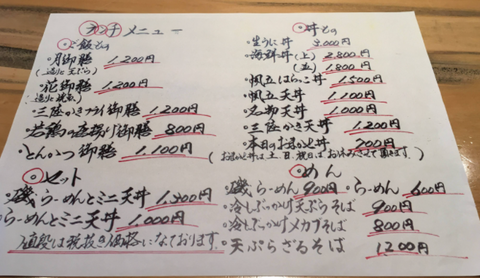 ランチメニュー
ご飯もの
・月御膳 1,200円
(造りに天ぷら)
・花御膳 1,200円
・三陸かきフライ御膳 1,200円
・若鶏の唐揚げ御膳 800円
・とんかつ御膳 1,100円
セット
・磯らーめんとミニ天丼 1,300円
・らーめんとミニ天丼 1,000円
値段は税抜き価格になっております。
丼もの
・生うに丼 3,000円
・海鮮丼(上) 2,800円
(並) 1,800円
・帆立はらこ丼 1,500円
・帆立天丼 1,100円
・名物天丼 1,000円
・三陸かき天丼 1,200円
・本日のおまかせ丼 700円
(おまかせ丼は土、日、祝日はお休みさせて頂きます)
めん
・磯らーめん 900円 ・らーめん 600円
・冷しぶっかけ天ぷらそば 900円
・冷しぶっかけメカブそば 800円
・天ぷらざるそば 1,200円